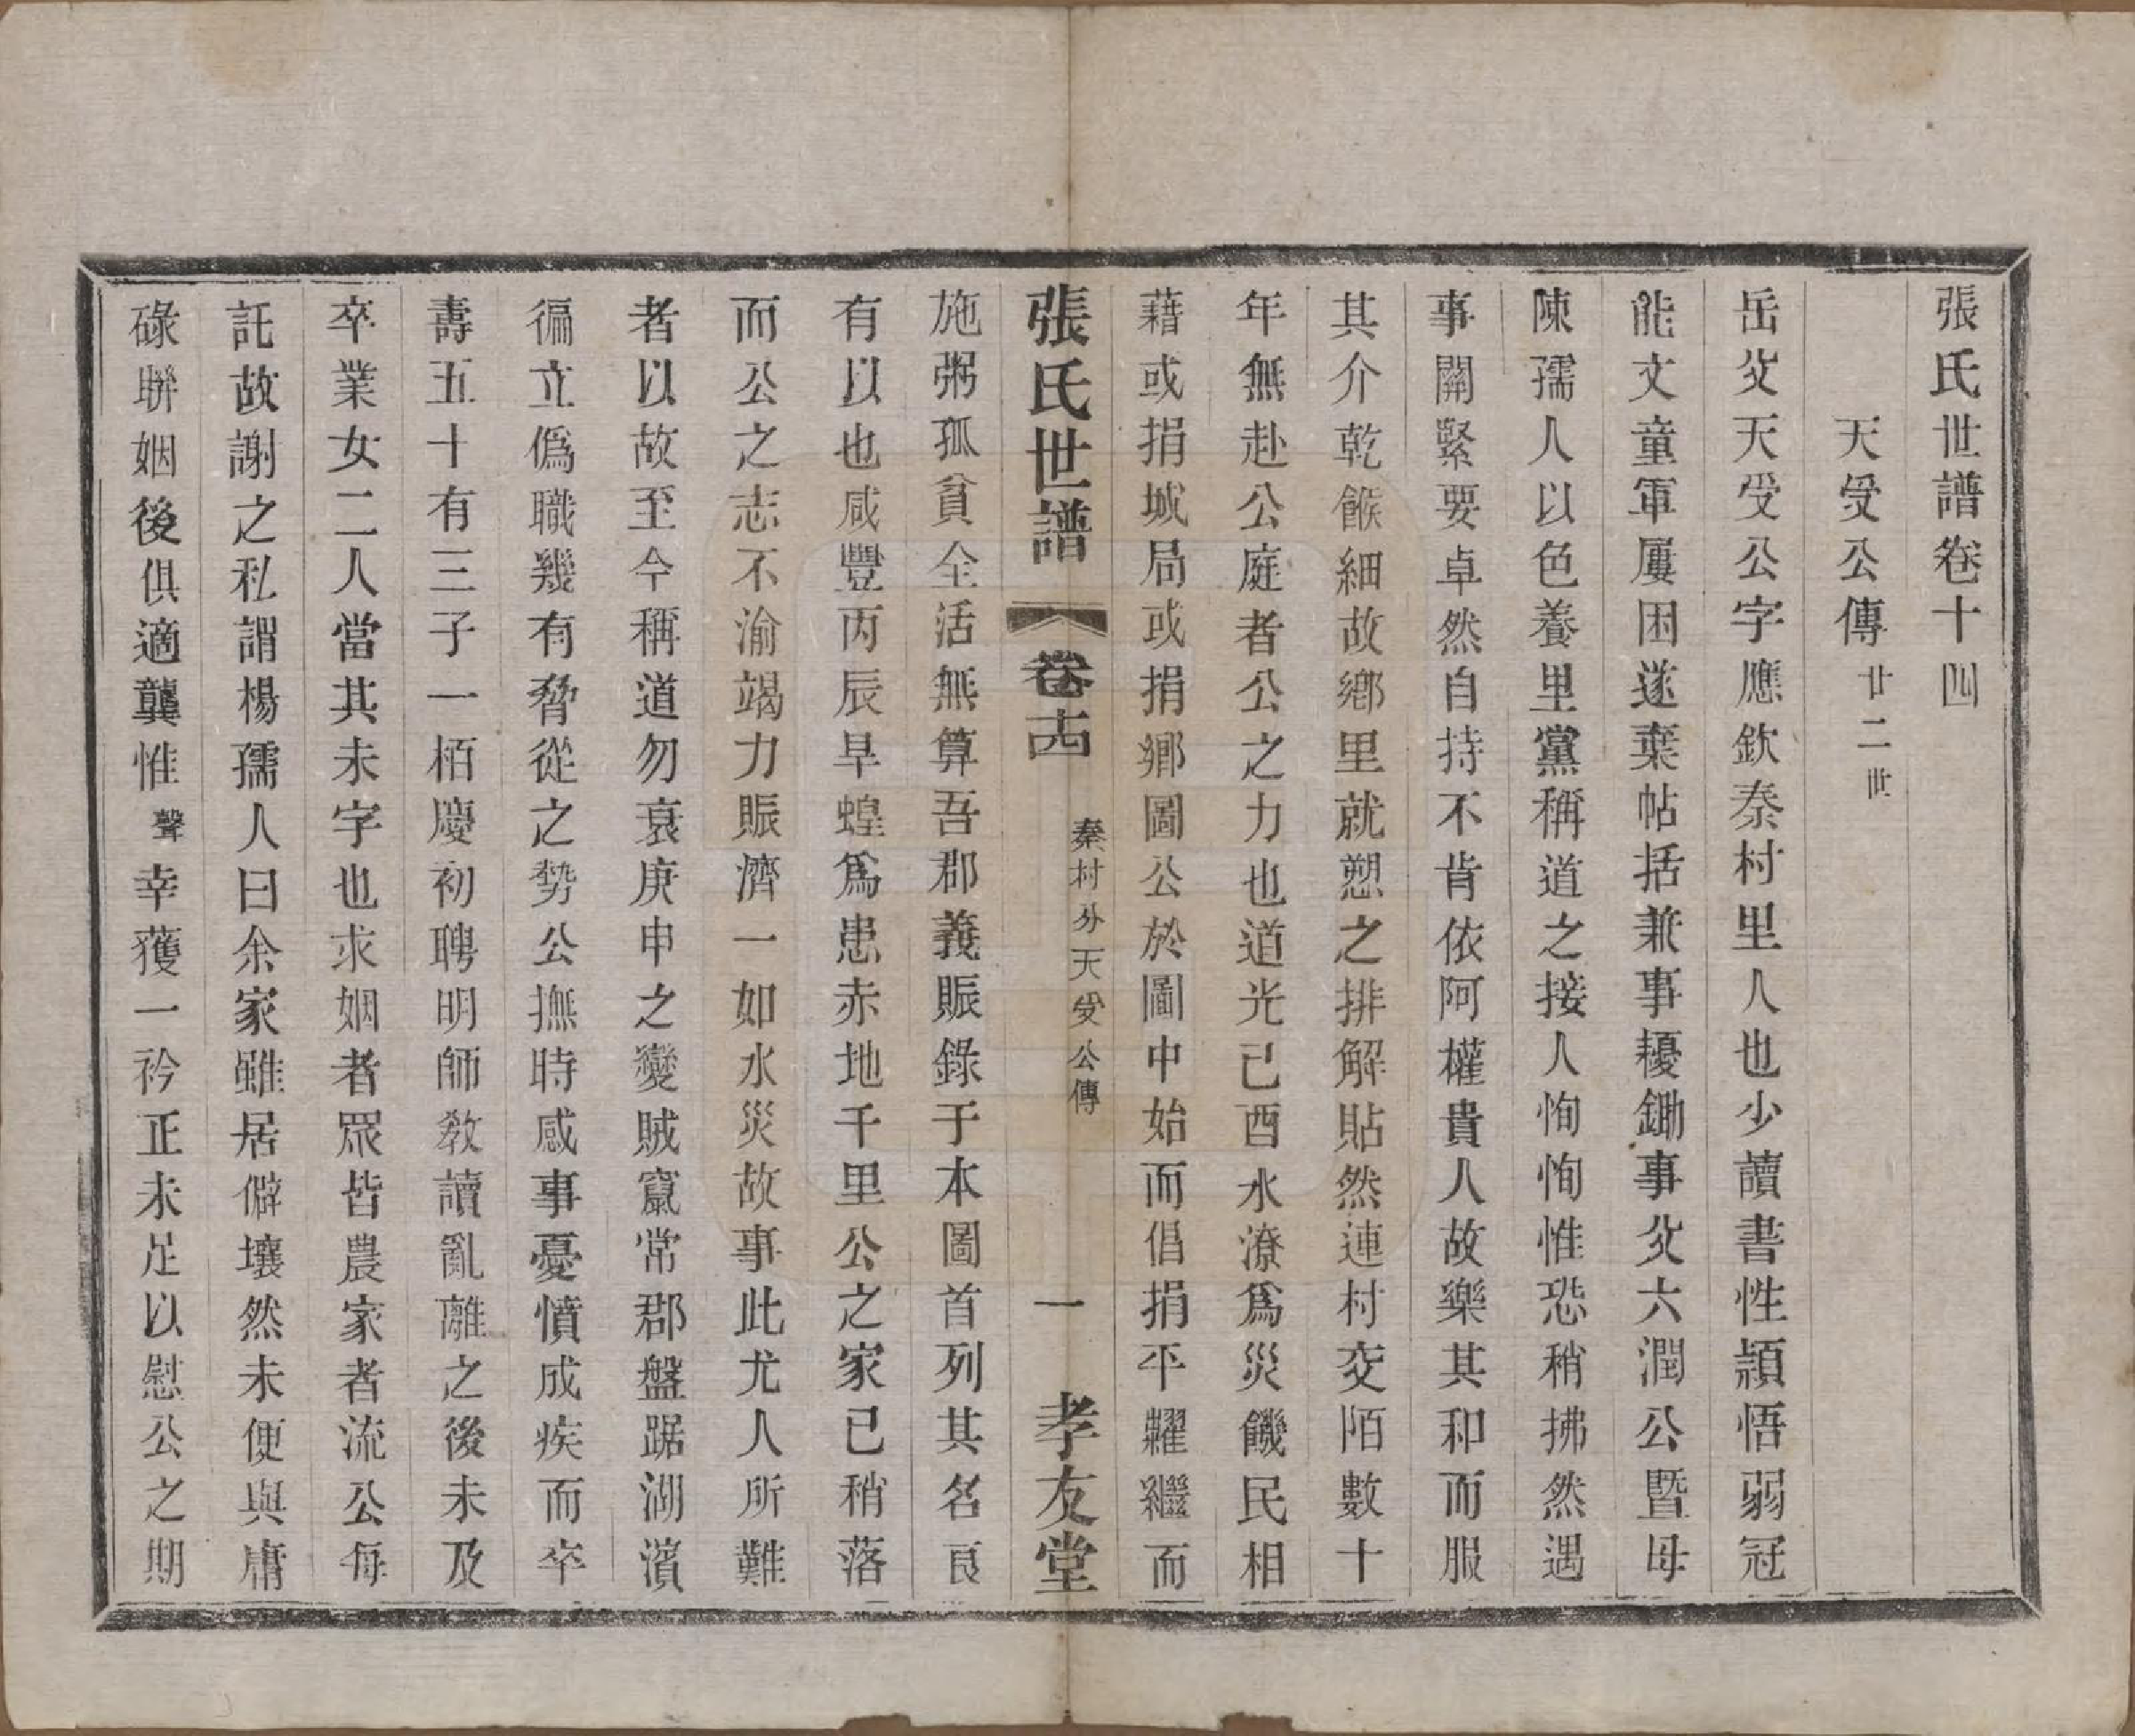 張氏世譜卷十四
天受公傳 廿二世
岳父天受公字應欽秦村里人也少讀書性穎悟弱冠
能文童軍屢困遂棄帖括兼事耰鋤事父六潤公暨母
陳孺人以色養里黨稱道之接人恂恂惟恐稍拂然遇
事關緊要卓然自持不肯依阿權貴人故樂其和而服
其介乾餱細故鄉里就愬之排解貼然連村交陌數十
年無赴公庭者公之力也道光己酉水潦爲災饑民相
藉或捐城局或捐鄉圖公於圖中始而倡捐平糶繼而
張氏世譜 卷十四 秦村分天受公傳 一 孝友堂
施粥孤貧全活無算吾郡義賑錄于本圖首列其名良
有以也咸豐丙辰旱蝗爲患赤地千里公之家已稍落
而公之志不渝竭力賑濟一如水災故事此尤人所難
者以故至今稱道勿衰庚申之變賊竄常郡盤踞湖濱
徧立僞職幾有脅從之勢公撫時感事憂憤成疾而卒
壽五十有三子一栢慶初聘明師教讀亂離之後未及
卒業女二人當其未字也求姻者眾皆農家者流公每
託故謝之私謂楊孺人曰余家雖居僻壤然未便與庸
碌聯姻後俱適龔惟聲幸獲一衿正未足以慰公之期